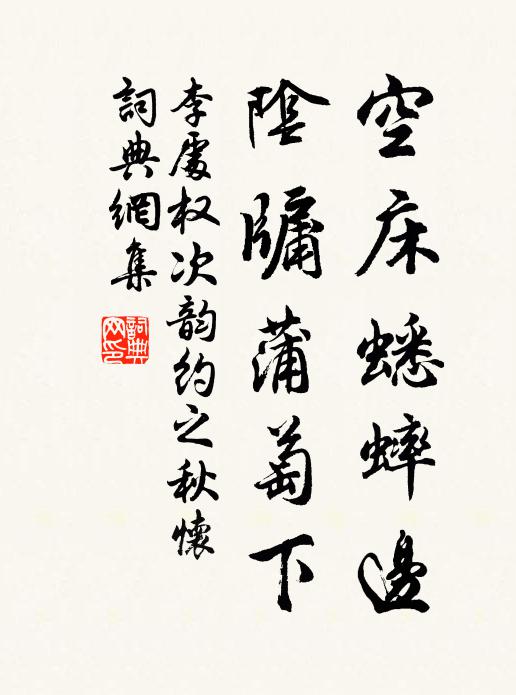 空床蟋蟀邊
陰牖蒲萄下
李處权次韵約之秋懷
詞典網集
詞典网印